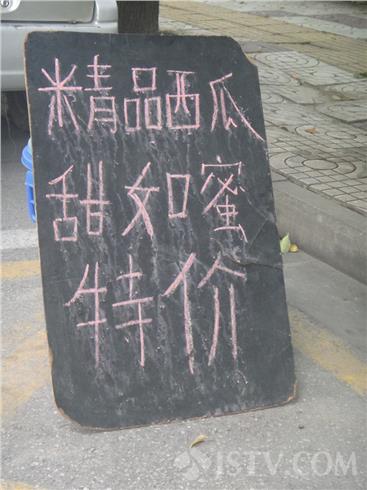 精品西瓜
甜如蜜
特价
JSTV.COM